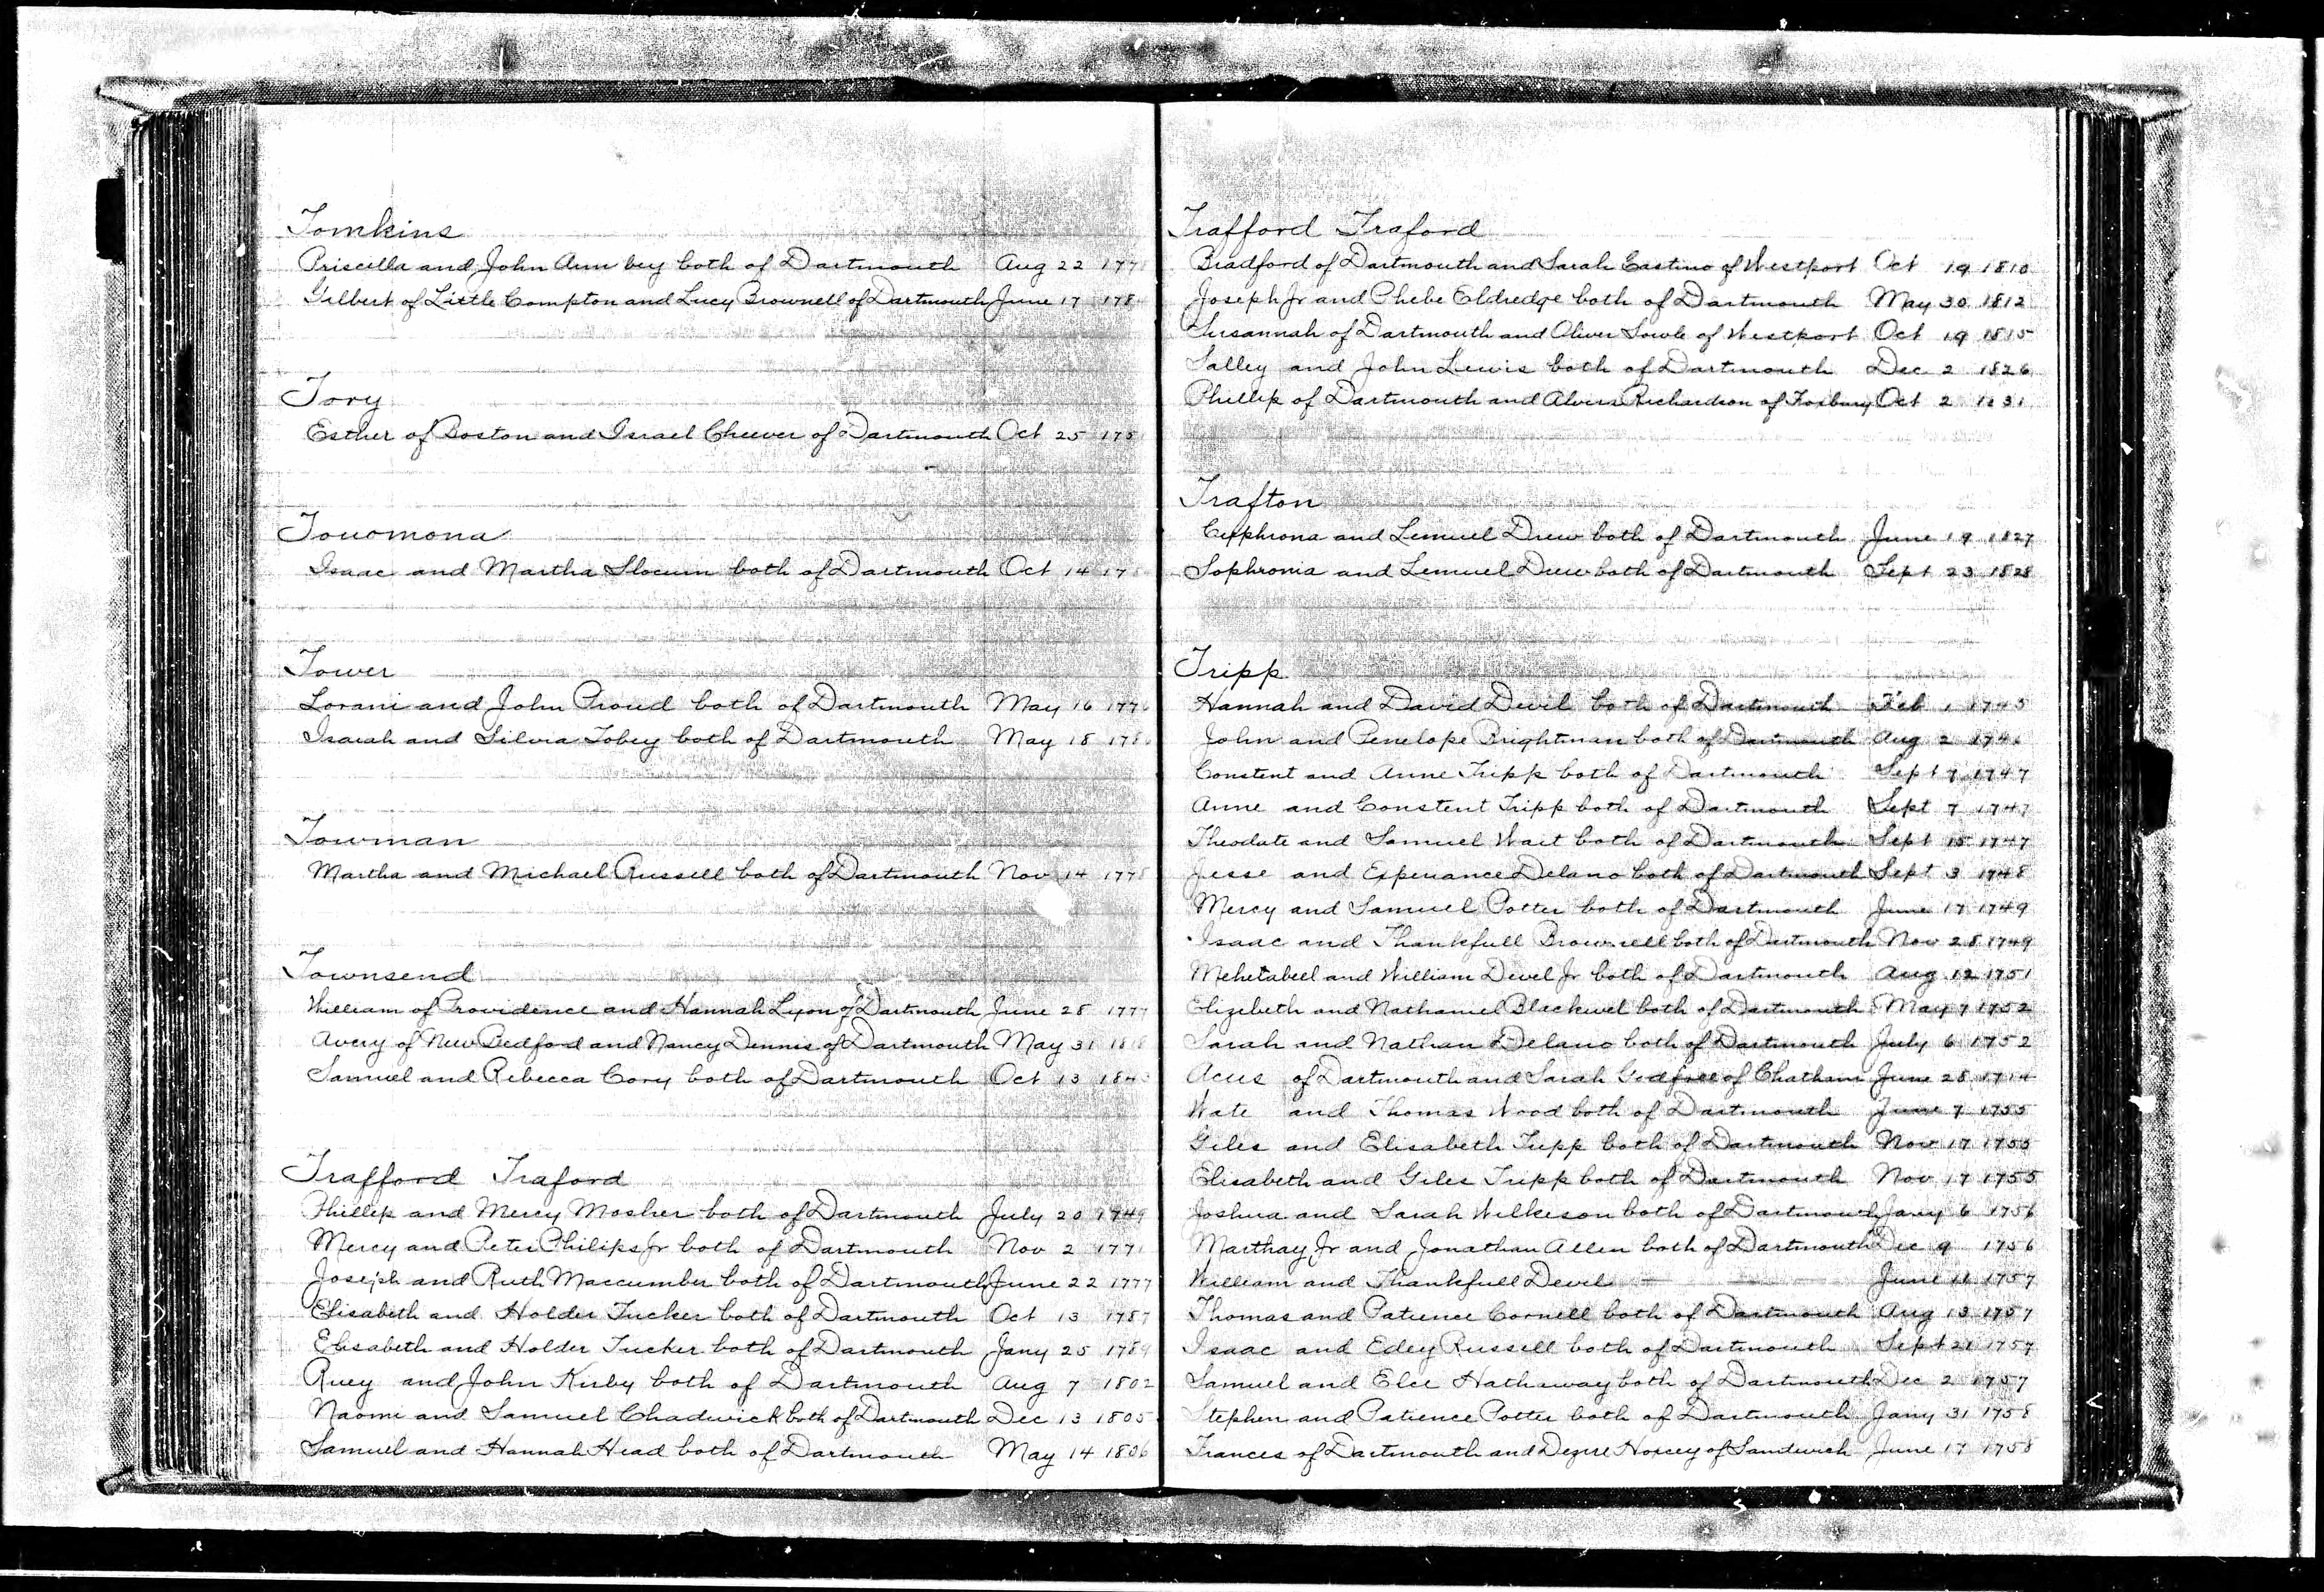 Tomkins
Priscilla and John Ann bey both of Dartmouth Aug 22
Gilbert of Little Compton and Lucy Brownell of Dartmouth June 17
Tory
Esther of Boston and Israel Cheever of Dartmouth Oct 25
Touomona
Isaac and Martha Slocum both of Dartmouth Oct 14
Tower
Lorani and John Proud both of Dartmouth May 16
Isaiah and Silvia Tobey both of Dartmouth May 18
Towman
Martha and Michael Russell both of Dartmouth Nov 14 1778
Townsend
William of Providence and Hannah Lyon of Dartmouth June 28 1777
Avery of New Bedford and Nancy Dennis of Dartmouth May 31
Samuel and Rebecca Cory both of Dartmouth Oct 13
Trafford Traford
Phillip and Mercy Mosher both of Dartmouth July 20 1749
Mercy and Peter Philips Jr both of Dartmouth Nov 2
Joseph and Ruth Maccumber both of Dartmouth June 22 1777
Elisabeth and Holder Tucker both of Dartmouth Oct 13 1787
Elisabeth and Holder Tucker both of Dartmouth Jany 25 1789
Ruey and John Kirby both of Dartmouth Aug 7 1802
Naomi and Samuel Chadwick both of Dartmouth Dec 13 1805
Samuel and Hannah Head both of Dartmouth May 14 1806
Trafford Traford
Bradford of Dartmouth and Sarah of Westport Oct 19 1810
Joseph Jr and Phebe Eldredge both of Dartmouth May 30 1812
Susannah of Dartmouth and Oliver Sowle of Westport Oct 19 1815
Salley and John Lewis both of Dartmouth Dec 2 1826
Phillip of Dartmouth and Richardson of Oct 2 1831
Trafton
and Lemuel Drew both of Dartmouth June 19 1827
Sophronia and Lemuel Drew both of Dartmouth Sept 23 1828
Tripp
Hannah and David Devil both of Dartmouth Feb 1 1745
John and Penelope Brightman both of Dartmouth Aug 2 1746
Constent and Anne Tripp both of Dartmouth Sept 7 1747
Anne and Constent Tripp both of Dartmouth Sept 7 1747
Theodate and Samuel Wait both of Dartmouth Sept 15 1747
Jesse and Experiance Delano both of Dartmouth Sept 3 1748
Mercy and Samuel Potter both of Dartmouth June 17 1749
Isaac and Thankfull Brownell both of Dartmouth Nov 28 1749
Mehetabeel and William Devel Jr both of Dartmouth Aug 12 1751
Elizebeth and Nathaniel Blackwel both of Dartmouth May 7 1752
Sarah and Nathan Delano both of Dartmouth July 6 1752
Acus of Dartmouth and Sarah Godfree of Chatham June 28
Wate and Thomas Wood both of Dartmouth June 7 1755
Giles and Elisabeth Tripp both of Dartmouth Nov 17 1755
Elisabeth and Giles Tripp both of Dartmouth Nov 17 1755
Joshua and Sarah Wilkeson both of Dartmouth Jany 6 1756
Marthay Jr and Jonathan Allen both of Dartmouth Dec 9 1756
William and Thankfull Devel June 11 1757
Thomas and Patience Cornell both of Dartmouth Aug 13 1757
Isaac and Edey Russell both of Dartmouth Sept 21 1757
Samuel and Elce Hathaway both of Dartmouth Dec 2 1757
Stephen and Patience Potter both of Dartmouth Jany 31 1758
Frances of Dartmouth and Dezire Hoxcey of Sandwich June 17 1758